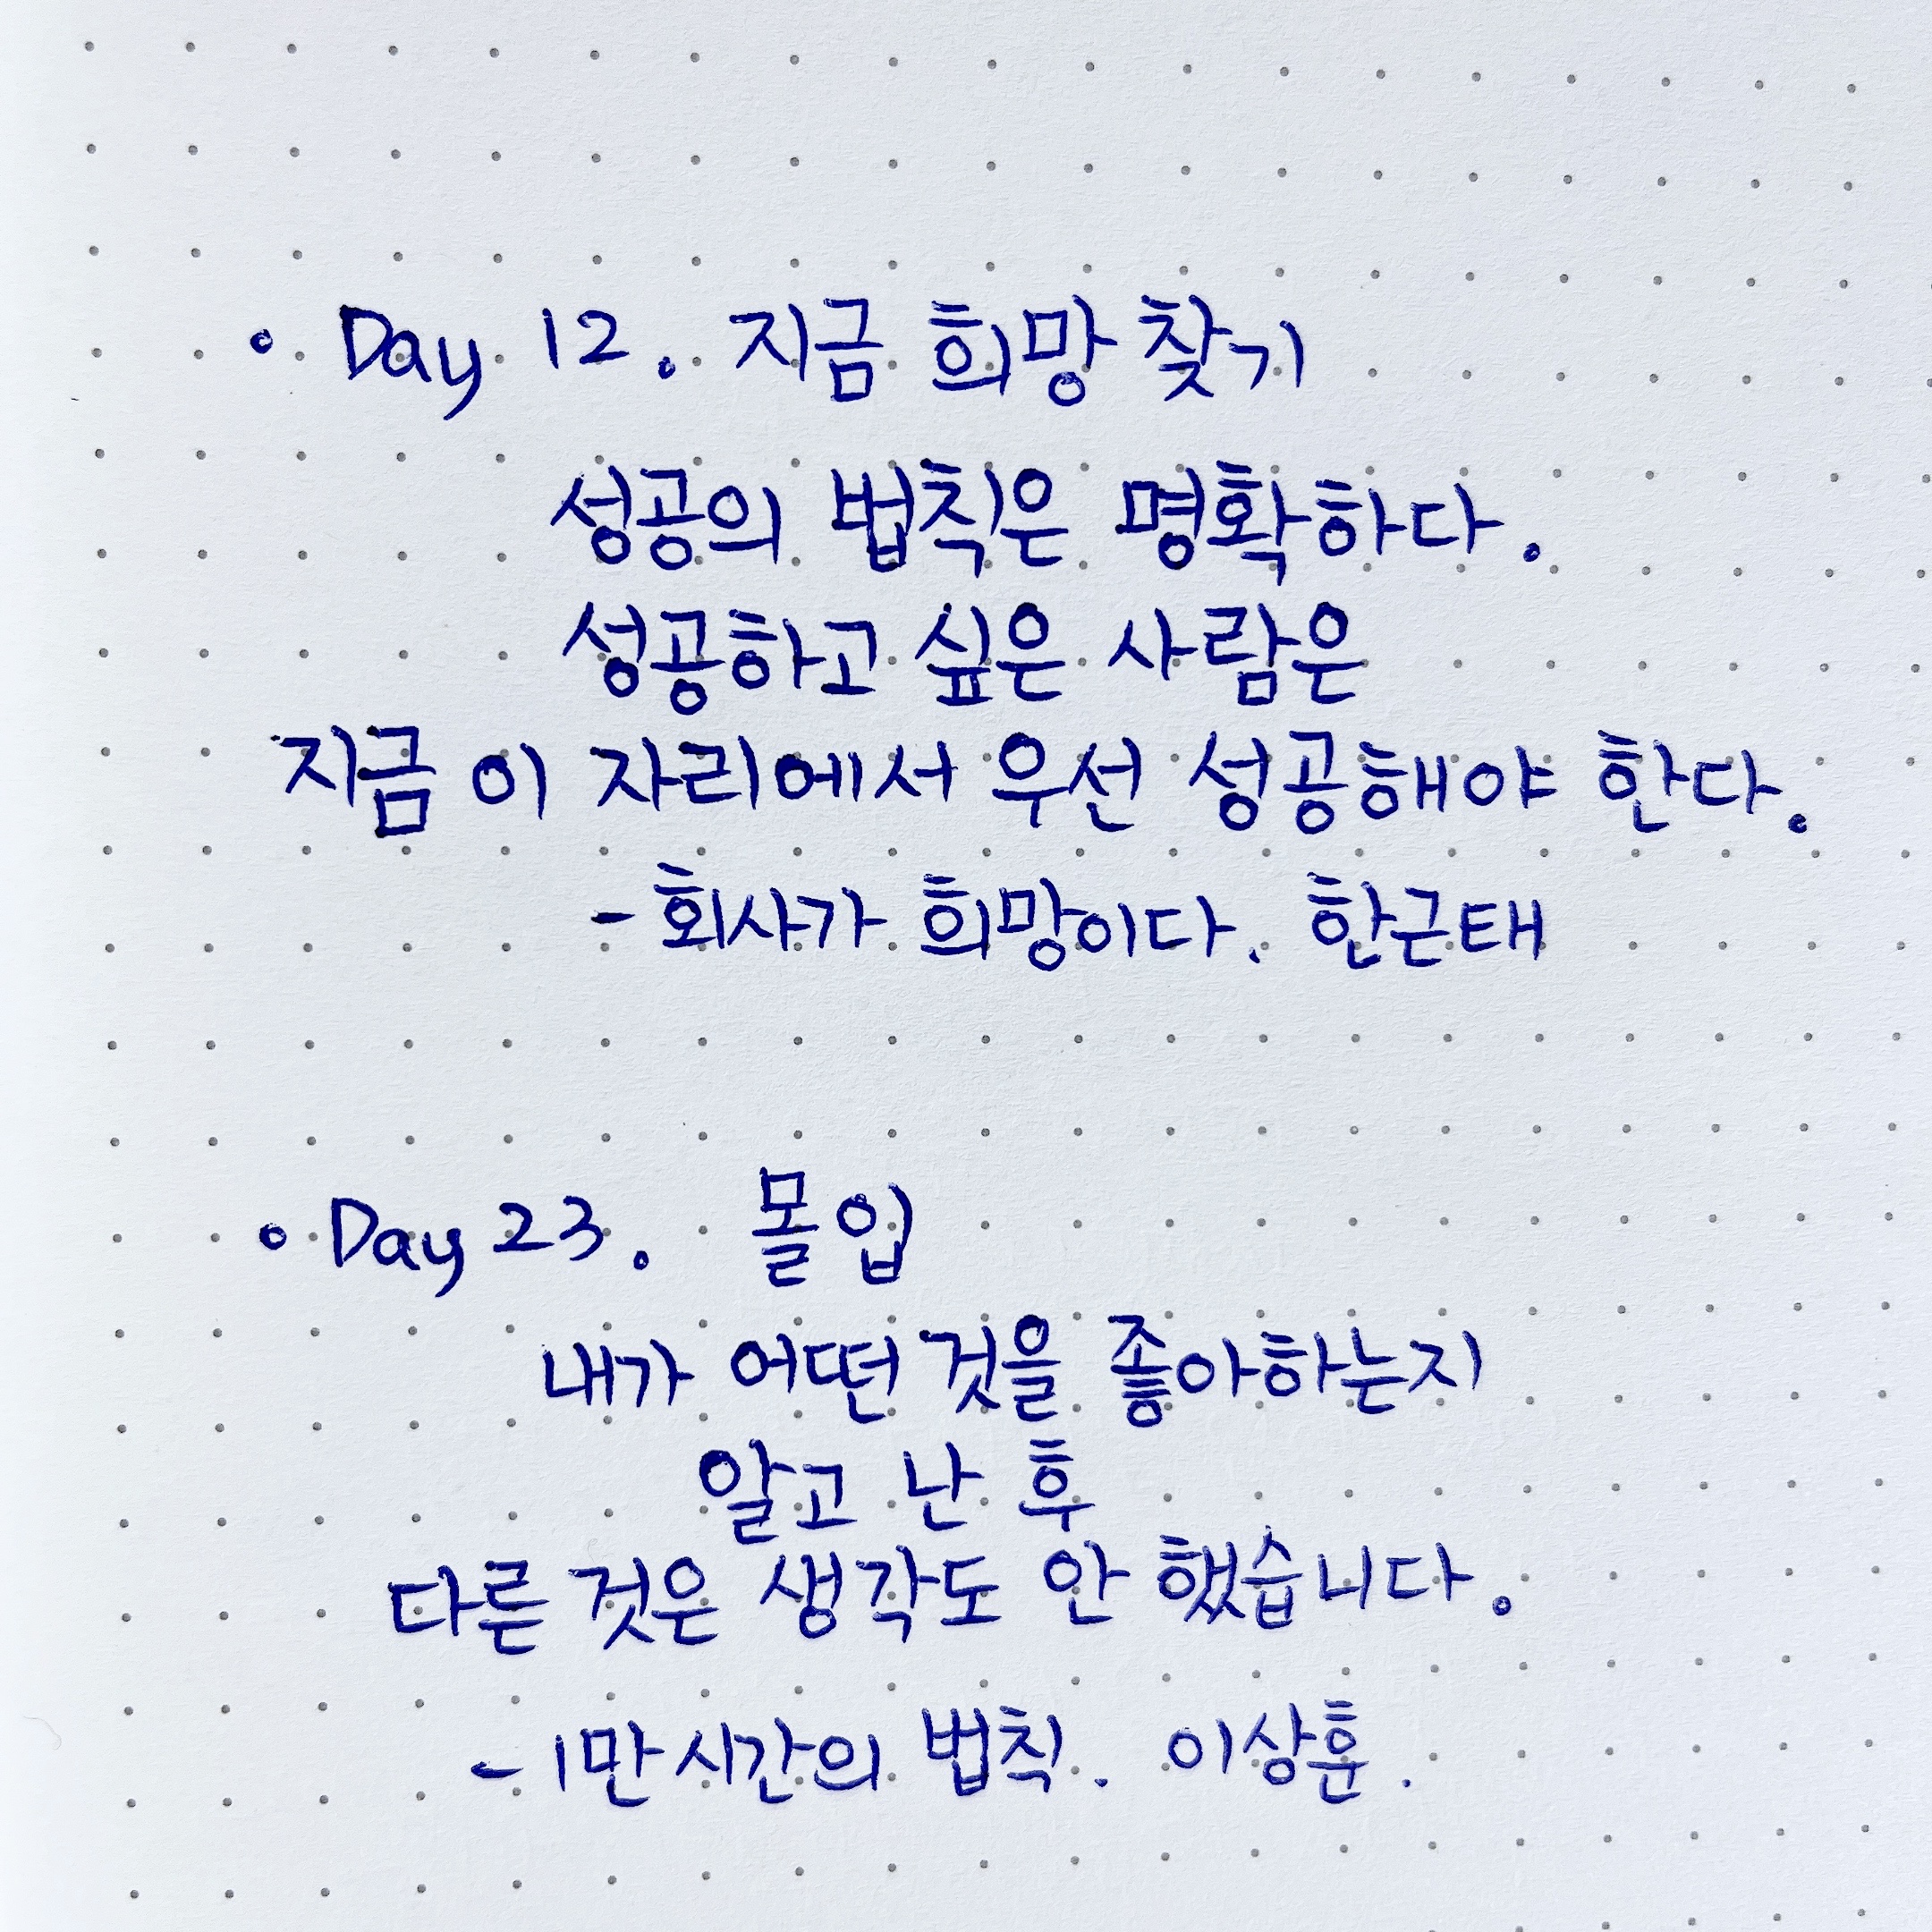 • Day 12. 지금 희망 찾기
성공의 법칙은 명확하다.
성공하고 싶은 사람은
지금 이 자리에서 우선 성공해야 한다.
- 회사가 희망이다. 한근태
• Day 23. 몰입
내가 어떤 것을 좋아하는지
알고 난 후
다른 것은 생각도 안 했습니다.
- 1만 시간의 법칙. 이상훈.